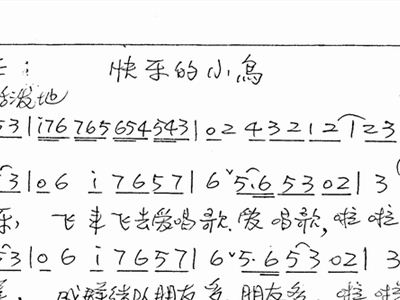 快乐的小鸟
活泼地
531 | i76 765 654 543 | 02 4321 2 1 23
3 | 0 6 i 7657 | 6ˇ5·6 5302 | 3
乐， 飞来飞去爱唱歌,爱唱歌,啦啦
3 | 0 6 i 7657 | 6ˇ5·6 5302 | 3
成群结队朋友多,朋友多,啦啦